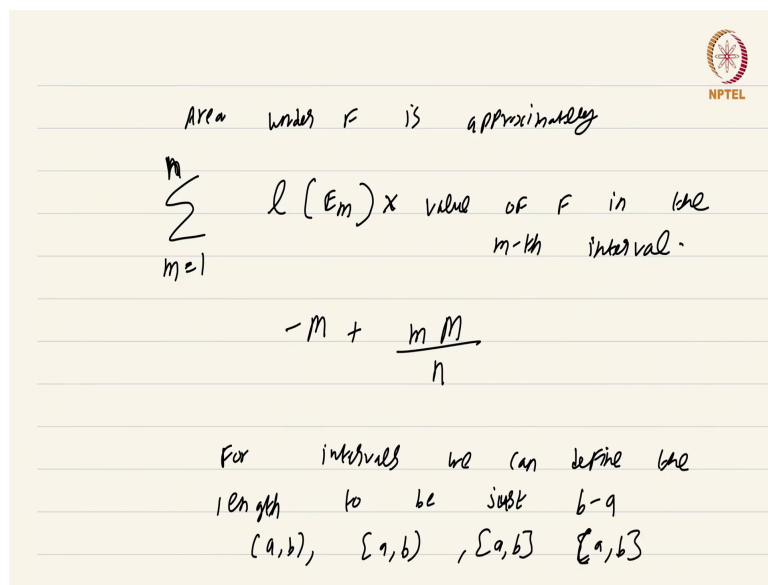 NPTEL
Area under F is approximately
n
∑ l (Em) x value of F in the
m=1 m-th interval.
-M + mM/n
For intervals we can define the
length to be just b-a
(a,b), [a,b) , [a,b] [a,b]